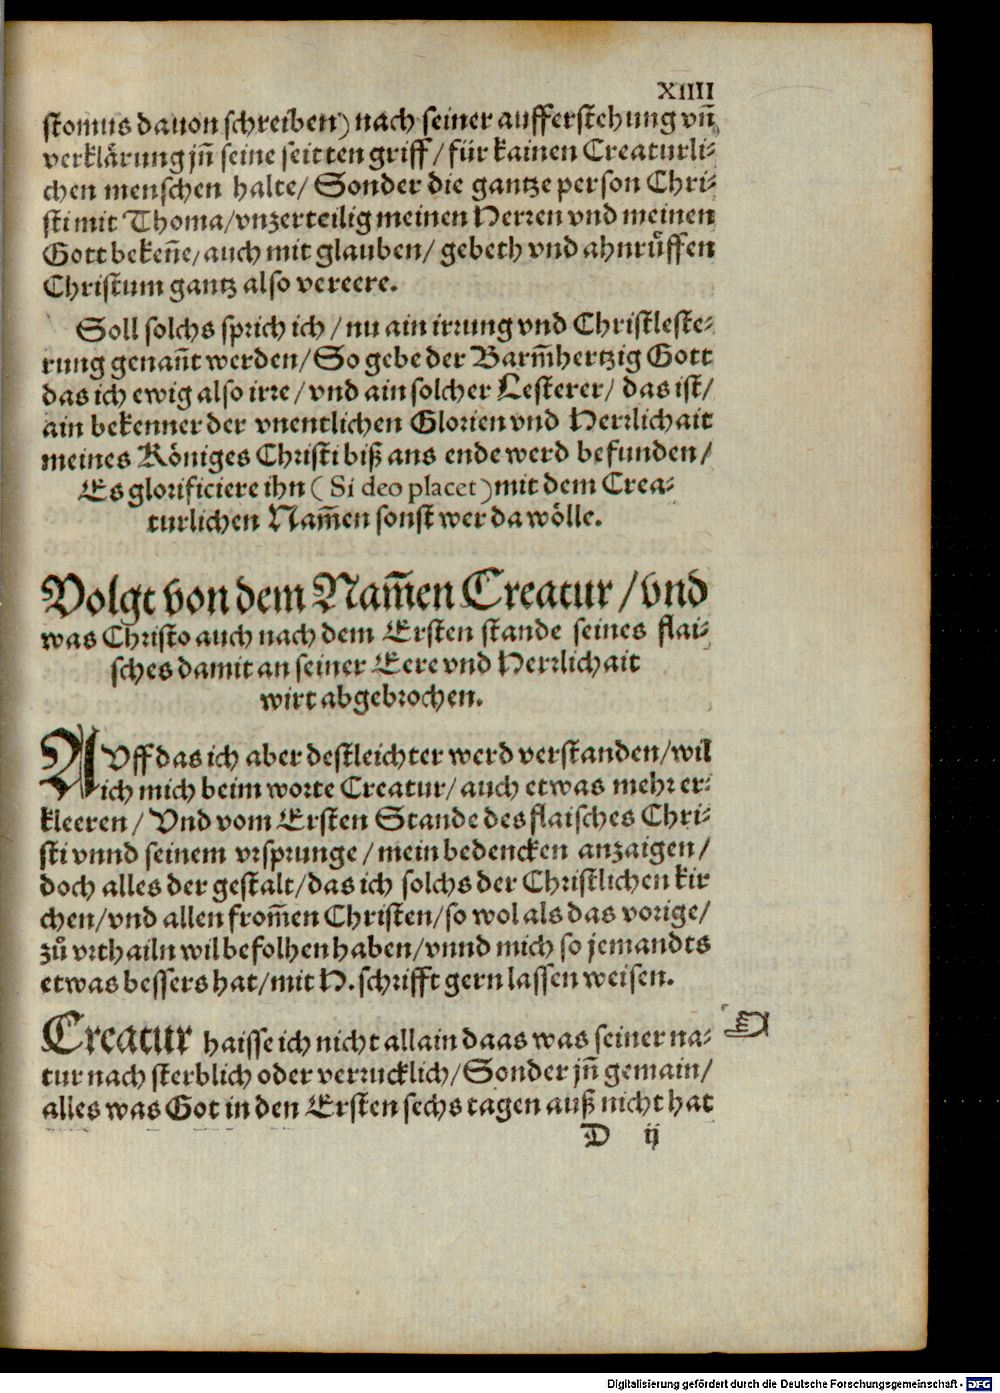 XIIII
stomus dauon schreiben) nach seiner aufferstehung vñ
verklärung jñ seine seitten griff / für kainen Creaturli⸗
chen menschen halte / Sonder die gantze person Chri⸗
sti mit Thoma / vnzerteilig meinen Herren vnd meinen
Gott bekeñe / auch mit glauben / gebeth vnd ahnrůffen
Christum gantz also vereere.
Soll solchs sprich ich / nu ain irrung vnd Christleste⸗
rung genañt werden / So gebe der Barm̃hertzig Gott
das ich ewig also irre / vnd ain solcher Lesterer / das ist /
ain bekenner der vnentlichen Glorien vnd Herrlichait
meines Königes Christi biß ans ende werd befunden /
Es glorificiere ihn ( Si deo placet ) mit dem Crea⸗
turlichen Nam̃en sonst wer da wölle.
Volgt von dem Nam̃en Creatur / vnd
was Christo auch nach dem Ersten stande seines flai⸗
sches damit an seiner Eere vnd Herrlichait
wirt abgebrochen.
AVff das ich aber destleichter werd verstanden / wil
ich mich beim worte Creatur / auch etwas mehr er⸗
kleeren / Vnd vom Ersten Stande des flaisches Chri⸗
sti vnnd seinem vrsprunge / mein bedencken anzaigen /
doch alles der gestalt / das ich solchs der Christlichen kir
chen / vnd allen from̃en Christen / so wol als das vorige /
zů vrthailn wil befolhen haben / vnnd mich so jemandts
etwas bessers hat / mit H. schrifft gern lassen weisen.
Creatur haisse ich nicht allain daas was seiner na⸗
tur nach sterblich oder verrucklich / Sonder jñ gemain /
alles was Got in den Ersten sechs tagen auß nicht hat
D ij
Digitalisierung gefördert durch die Deutsche Forschungsgemeinschaft - DFG